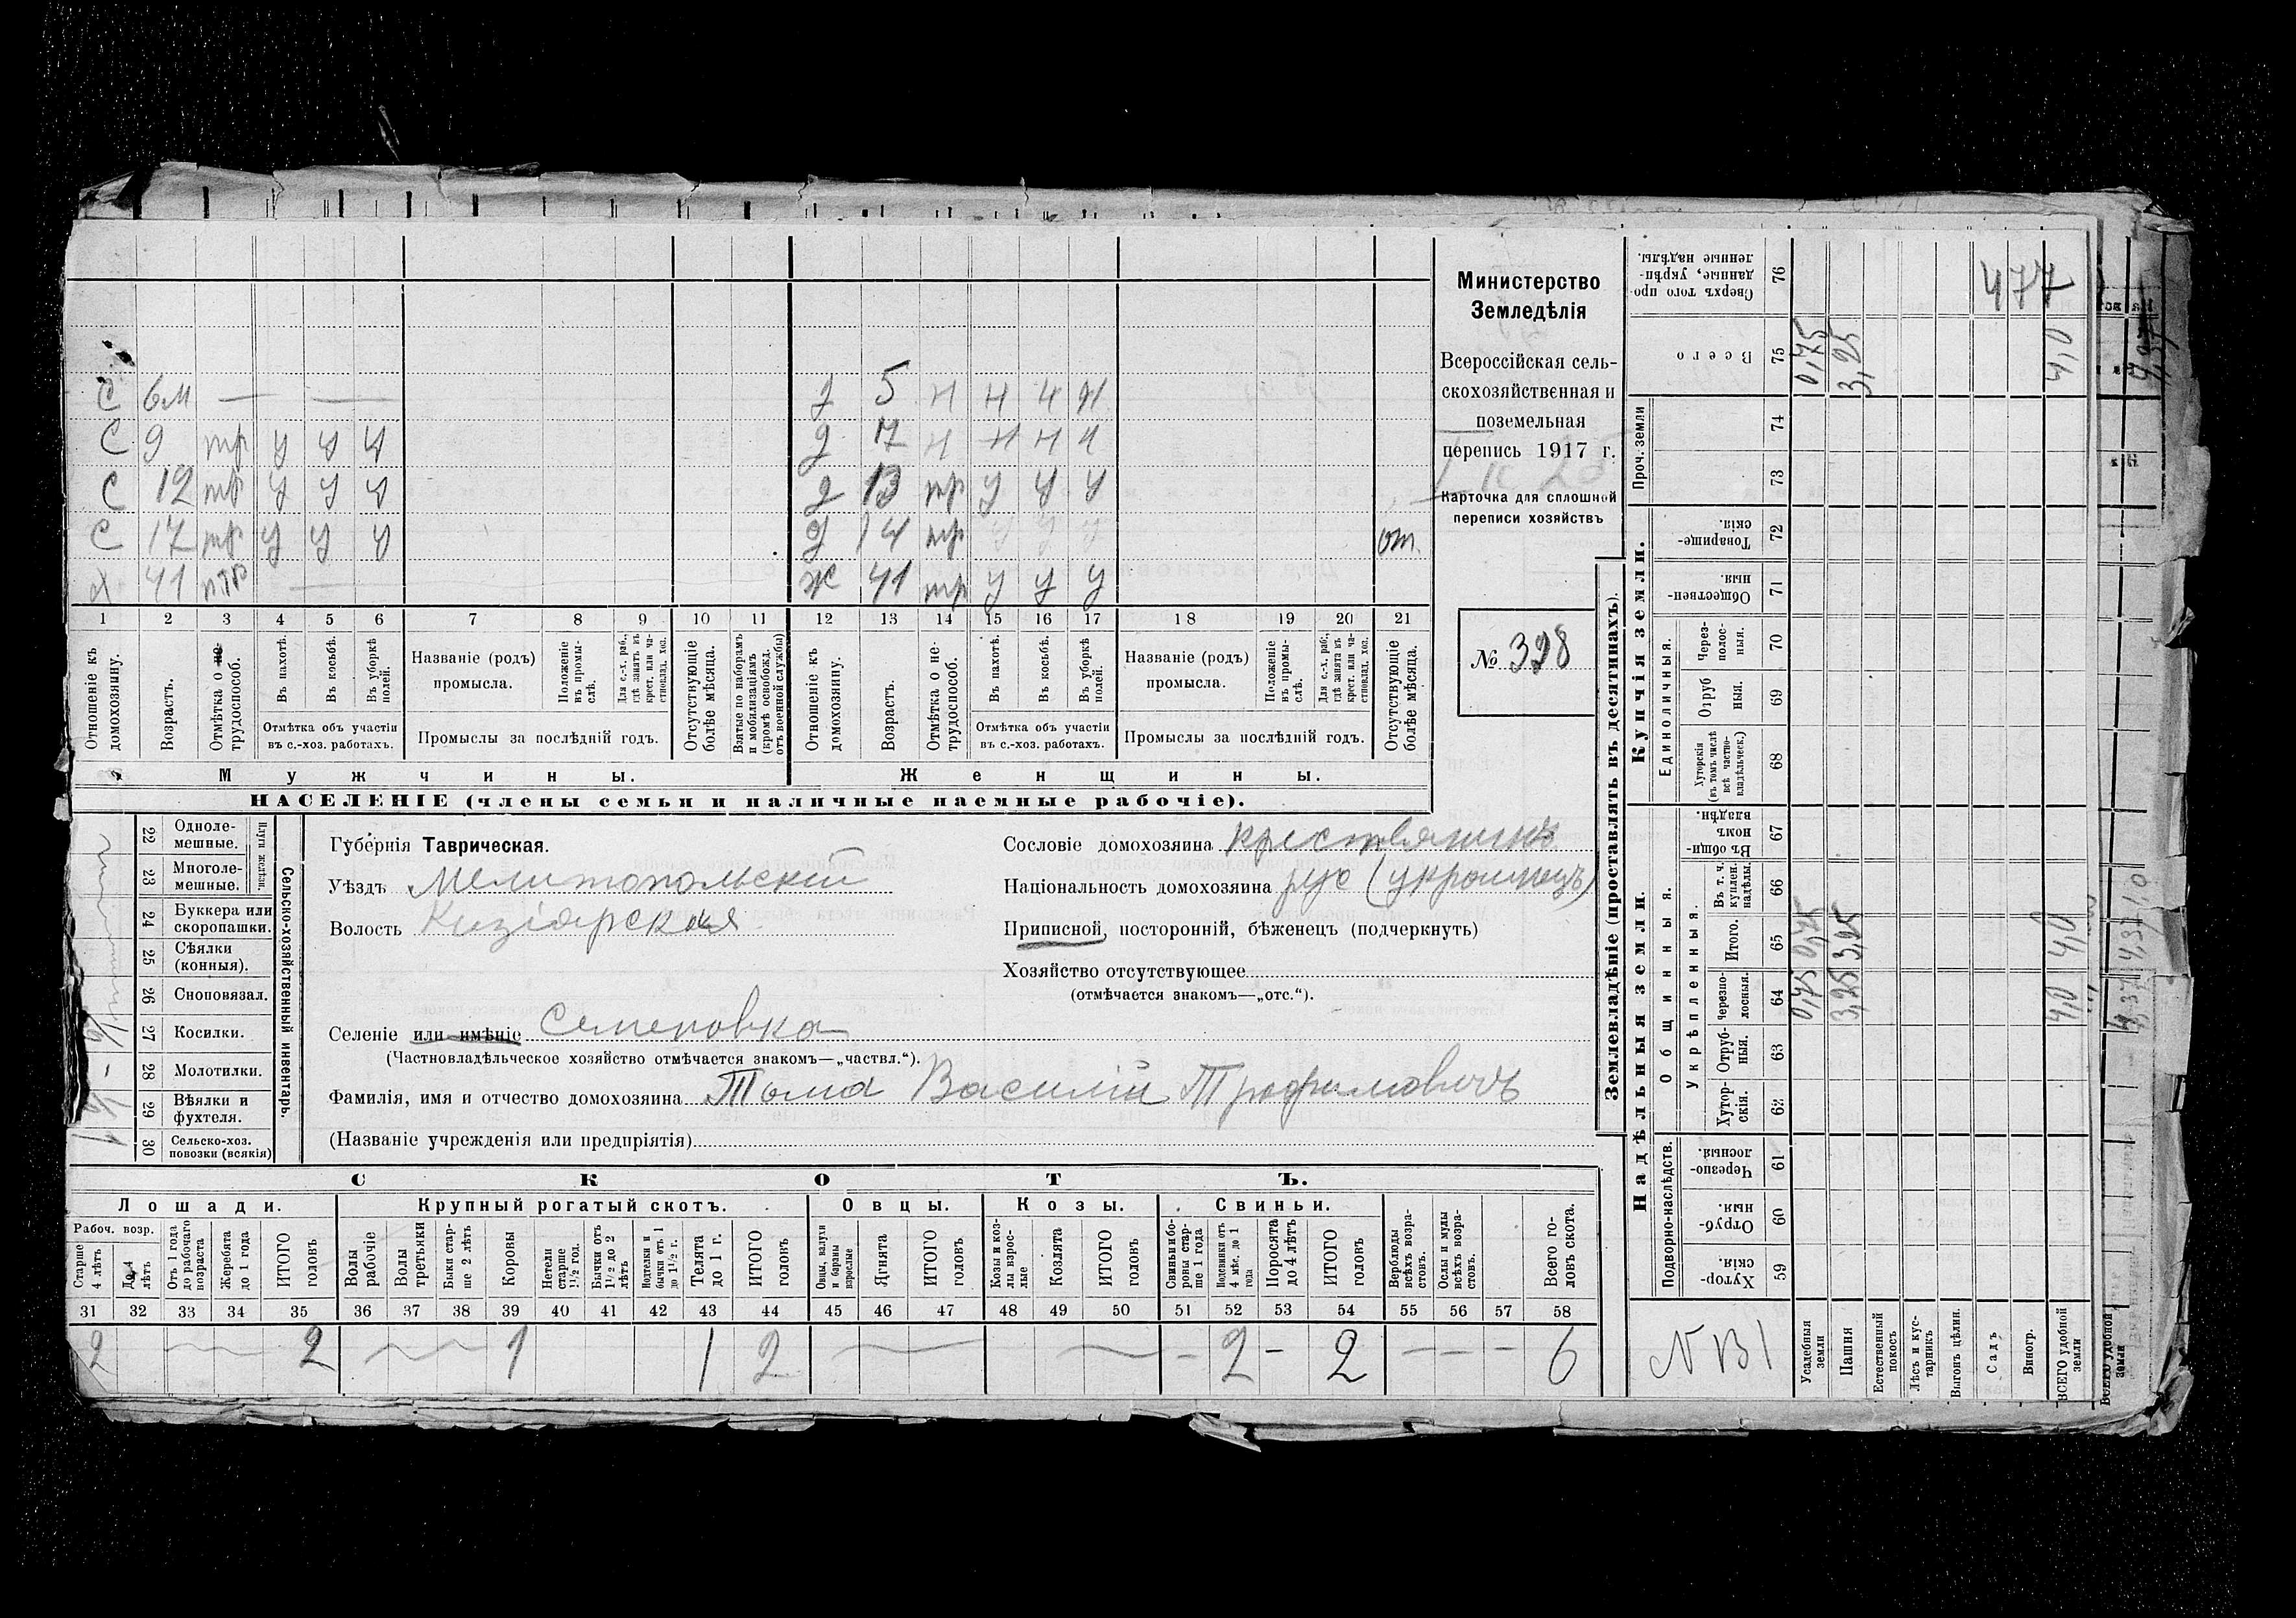 Министерство
Земледѣлія
Всероссійская сель-
скохозяйственная и
поземельная
перепись 1917 г.
Карточка для сплошной
переписи хозяйствъ
№ 328
С 6м — —
С 9 тр у у у
С 12 тр у у у
С 17 тр у у у
Х 41 —
д 5 н н н н
д 7 н н н н
д 13 тр у у у
д 14 тр у у у от.
ж 41 тр у у у
1 2 3 4 5 6 7 8 9 10 11 12 13 14 15 16 17 18 19 20 21
Отношеніе къ домохозяину.
Возрастъ.
Отмѣтка о не-трудоспособ.
Въ пахотѣ.
Въ косьбѣ.
Въ уборкѣ полей.
Отмѣтка объ участіи въ с.-хоз. работахъ.
Названіе (родъ) промысла.
Положеніе въ промы-слѣ.
Для с.-х. раб., гдѣ занятъ въ крест. или ча-стновлад. хоз.
Промыслы за послѣдній годъ.
Отсутствующіе болѣе мѣсяца.
Взятые по наборамъ и мобилизаціямъ (кромѣ освобожд. отъ военной службы)
Отношеніе къ домохозяину.
Возрастъ.
Отмѣтка о не-трудоспособ.
Въ пахотѣ.
Въ косьбѣ.
Въ уборкѣ полей.
Отмѣтка объ участіи въ с.-хоз. работахъ.
Названіе (родъ) промысла.
Положеніе въ промы-слѣ.
Для с.-х. раб., гдѣ занята въ крест. или ча-стновлад. хоз.
Промыслы за послѣдній годъ.
Отсутствующіе болѣе мѣсяца.
Мужчины.
Женщины.
НАСЕЛЕНІЕ (члены семьи и наличные наемные рабочіе).
Сельско-хозяйственный инвентарь.
Плуги желѣзн.
22 Одноле-мешные.
23 Многоле-мешные.
24 Буккера или скоропашки.
25 Сѣялки (конныя).
26 Сноповязал.
27 Косилки.
28 Молотилки. -
29 Вѣялки и фухтеля.
30 Сельско-хоз. повозки (всякія) 1
Губернія Таврическая.
Уѣздъ Мелитопольскій
Волость Кизіарская
Сословіе домохозяина крестьянинъ
Національность домохозяина рус (украинецъ)
Приписной, посторонній, бѣженецъ (подчеркнуть)
Хозяйство отсутствующее
(отмѣчается знакомъ—„отс.“).
Селеніе или имѣніе Семеновка
(Частновладѣльческое хозяйство отмѣчается знакомъ—„частвл.“).
Фамилія, имя и отчество домохозяина Тома Василій Трофимовичъ
(Названіе учрежденія или предпріятія)
СКОТЪ.
Лошади. Крупный рогатый скотъ. Овцы. Козы. Свиньи.
Рабоч. возр.
Старше 4 лѣтъ
До 4 лѣтъ
Отъ 1 года до рабочаго возраста
Жеребята до 1 года
ИТОГО головъ
Волы рабочіе
Волы третьяки
Быки стар-ше 2 лѣтъ
Коровы
Нетели старше 1½ год.
Бычки отъ 1½ до 2 лѣтъ
Нетелки и бычки отъ 1 до 1½ г.
Телята до 1 г.
ИТОГО головъ
Овцы, валухи и бараны взрослые
Ягнята
ИТОГО головъ.
Козы и коз-лы взрос-лые
Козлята
ИТОГО головъ.
Свиньи и бо-ровы стар-ше 1 года
Подсвинки отъ 4 мѣс. до 1 года
Поросята до 4 лѣтъ
ИТОГО головъ
Верблюды всѣхъ возра-стовъ.
Ослы и мулы всѣхъ возра-стовъ.
Всего го-ловъ скота.
31 32 33 34 35 36 37 38 39 40 41 42 43 44 45 46 47 48 49 50 51 52 53 54 55 56 57 58
2 2 1 1 2 - 2 - 2 - - - 6
Землевладѣніе (проставлять въ десятинахъ).
Купчія земли.
Надѣльныя земли.
Сверхъ того про-данные, укрѣп-ленные надѣлы. 76
Всего 75 0,75 3,25 4,0
477
Проч. земли 74 73
Товарище-скія. 72
Обществен-ныя. 71
Единоличныя.
Через-полос-ныя. 70
Отруб ныя. 69
Хуторскія (въ томъ числѣ всѣ частно-владѣльческ.) 68
Общинныя.
Въ общи-номъ владѣн. 67
Укрѣпленныя.
Въ т. ч. куплен. надѣлы. 66
Итого. 65 0,75 3,25 4,0
Черезпо-лосныя. 64 0,75 3,25 4,0
Отруб-ныя. 63
Хутор-скія. 62
Подворно-наслѣдств.
Черезпо-лосныя. 61
Отруб-ныя. 60
Хутор-скія. 59
NB1
Усадебныя земли
Пашня
Естественный покосъ
Лѣсъ и кус-тарникъ
Выгонъ цѣлин.
Садъ
Виногр.
ВСЕГО удобной земли
ВСЕГО удобной земли
4,37
4,37
4,37
1,0